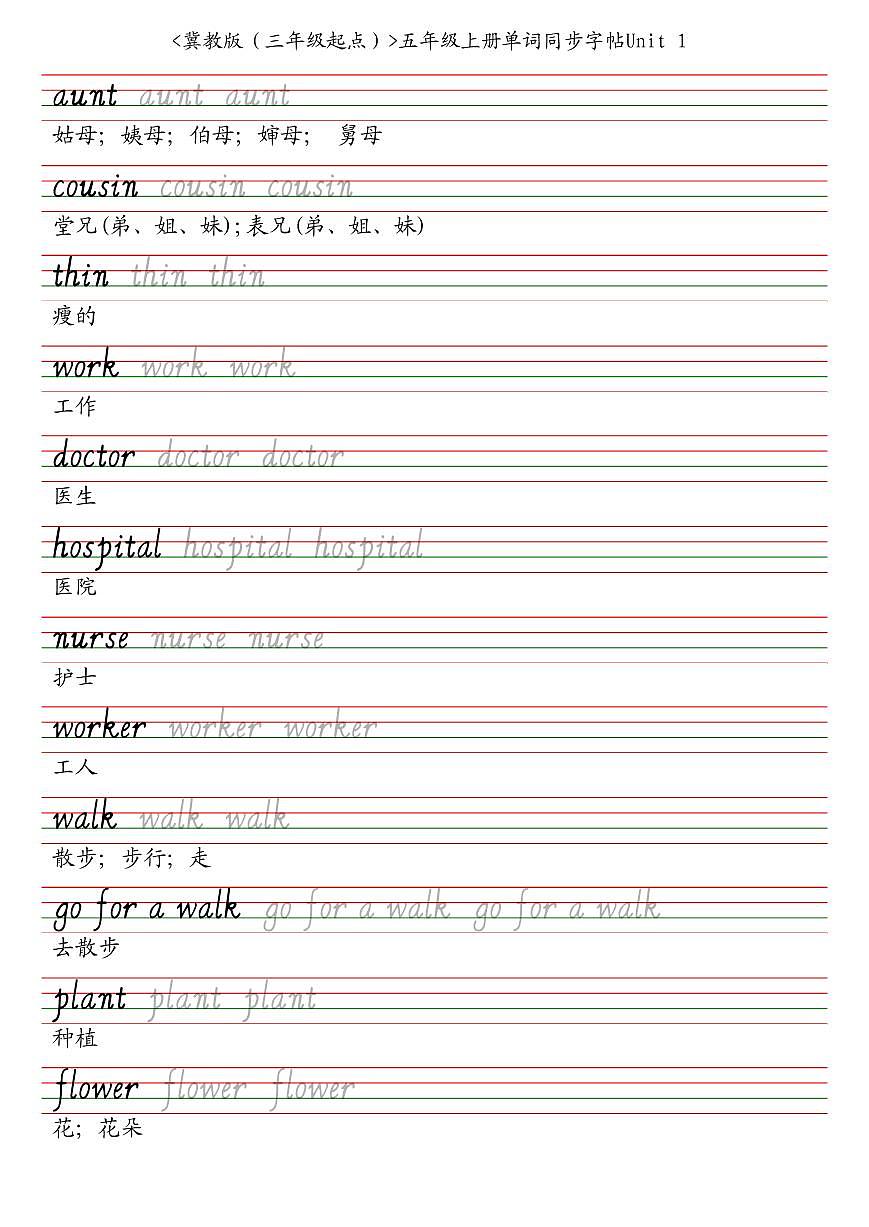 <冀教版（三年级起点）>五年级上册单词同步字帖Unit 1
aunt aunt aunt
姑母；姨母；伯母；婶母； 舅母
cousin cousin cousin
堂兄(弟、姐、妹);表兄(弟、姐、妹)
thin thin thin
瘦的
work work work
工作
doctor doctor doctor
医生
hospital hospital hospital
医院
nurse nurse nurse
护士
worker worker worker
工人
walk walk walk
散步；步行；走
go for a walk go for a walk go for a walk
去散步
plant plant plant
种植
flower flower flower
花；花朵